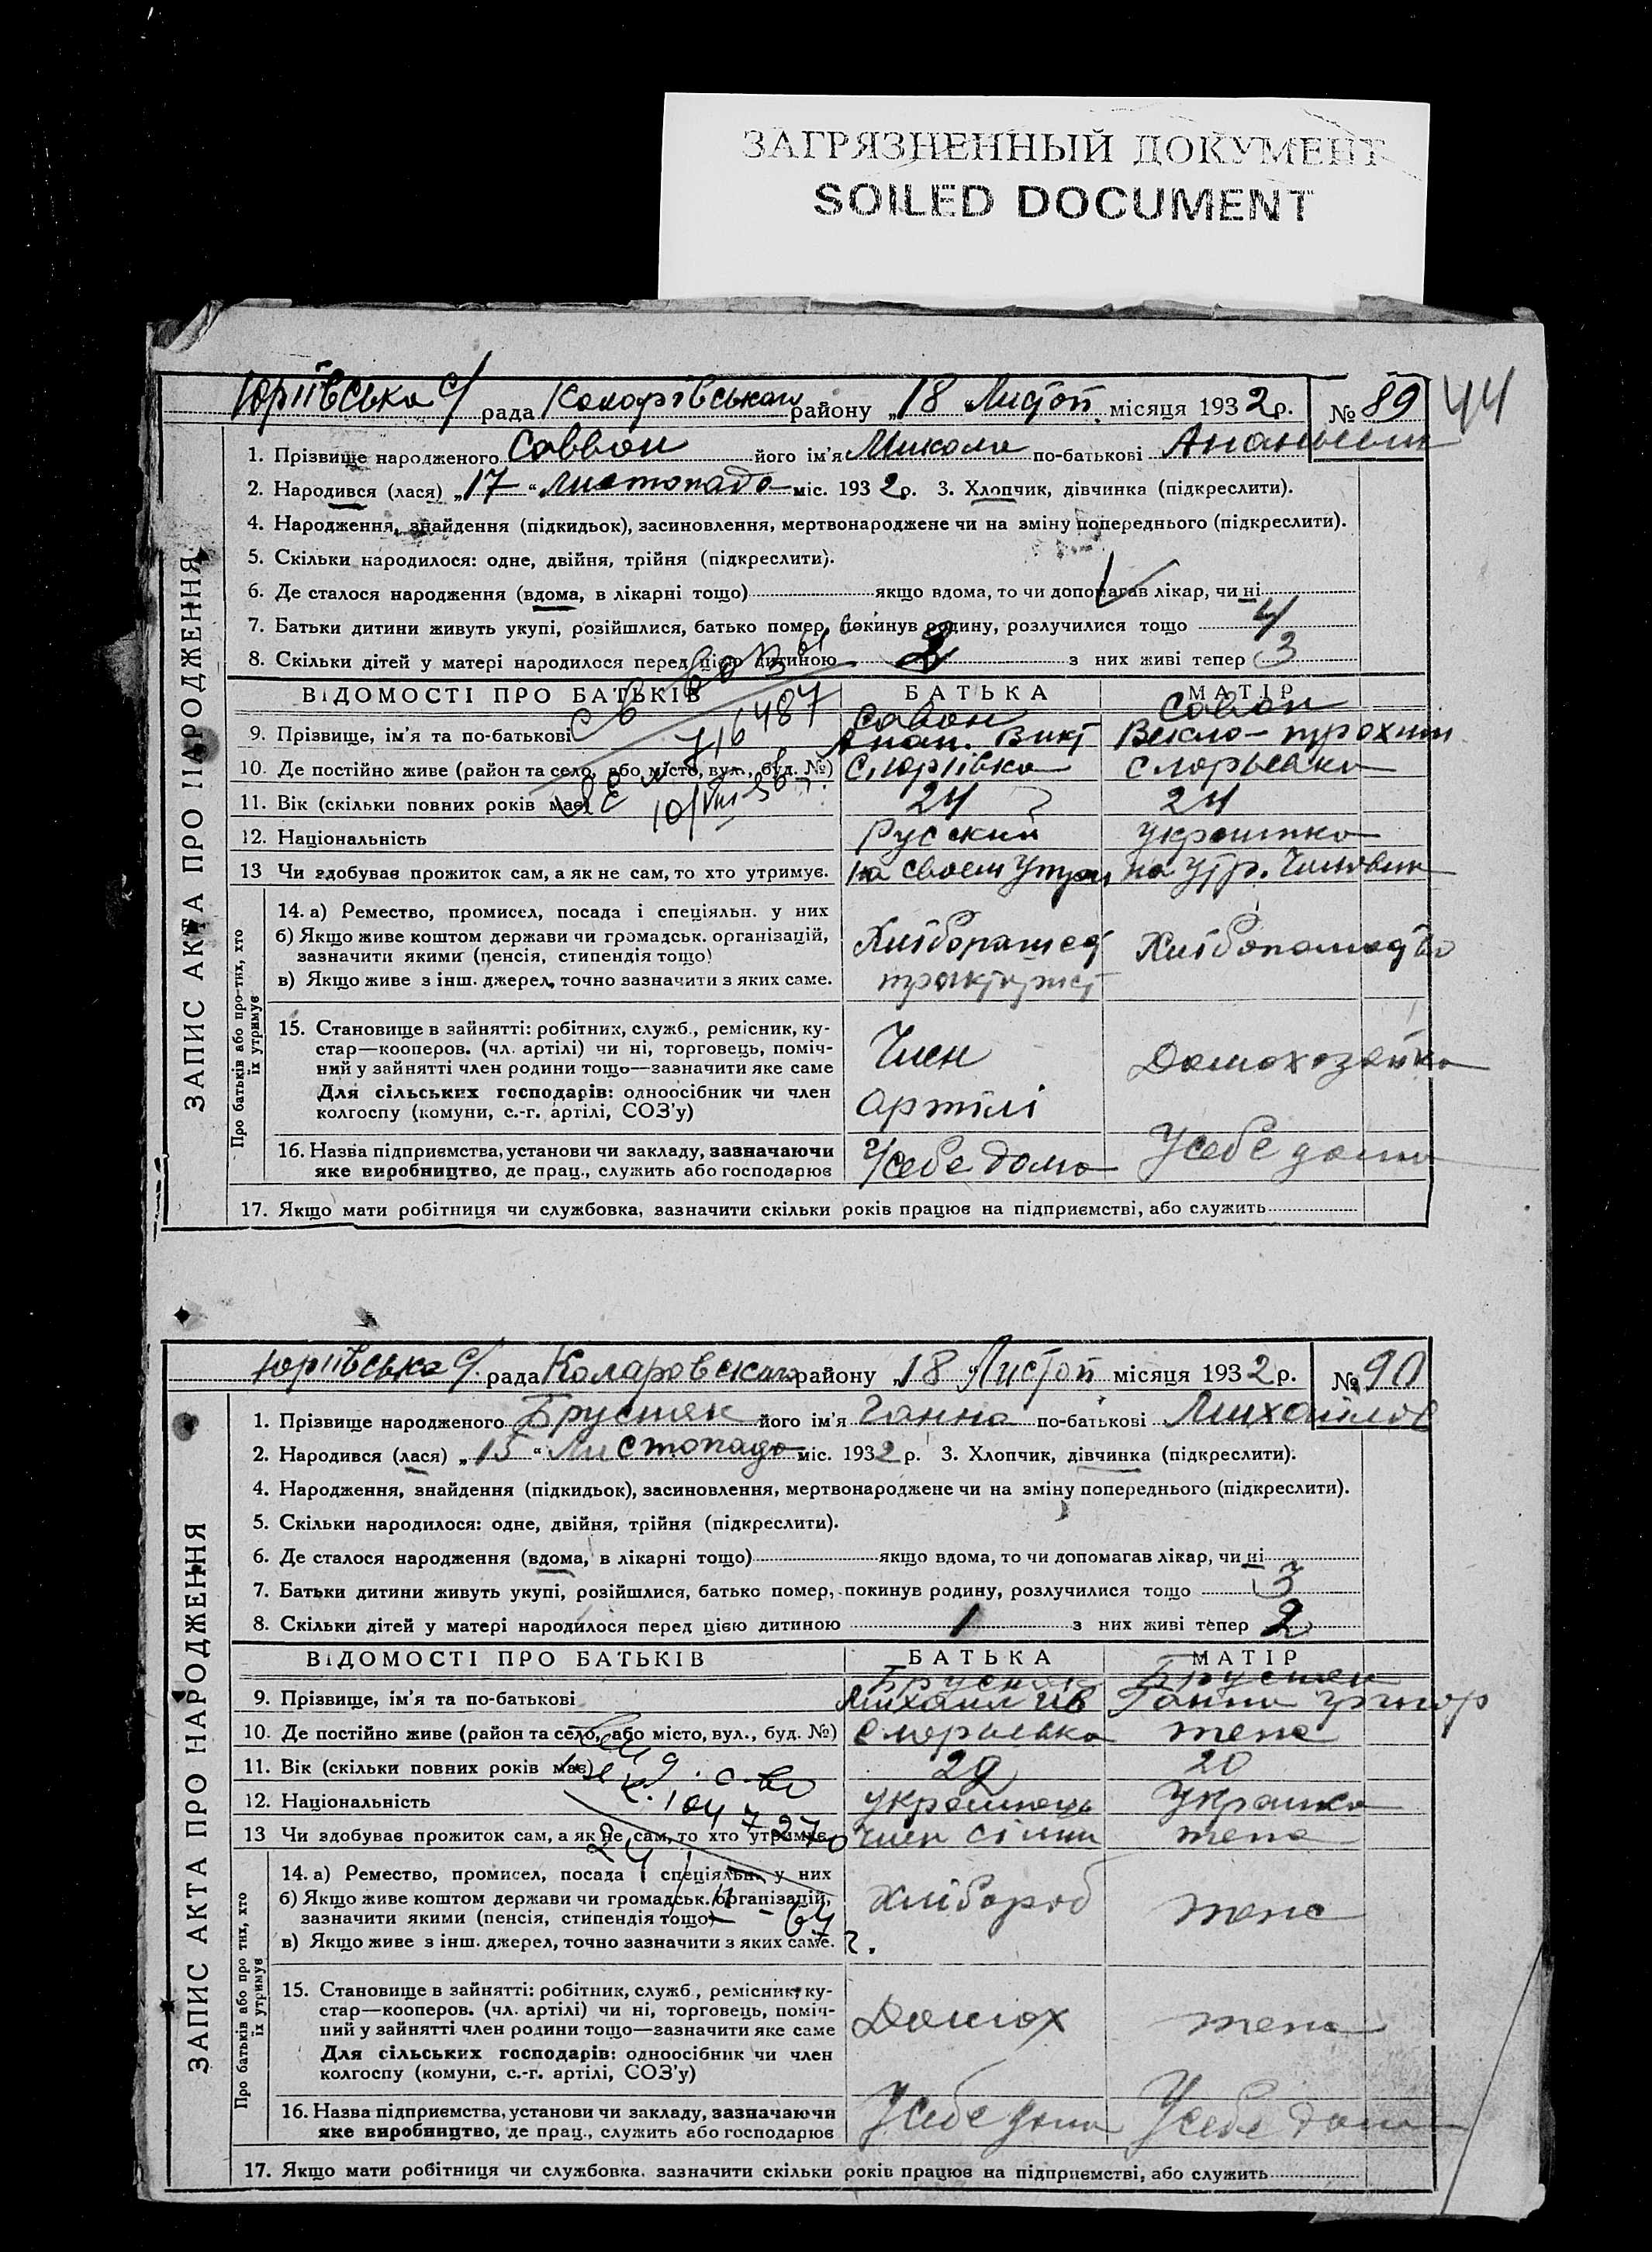 ЗАГРЯЗНЕННЫЙ ДОКУМЕНТ
SOILED DOCUMENT
44
Юріївська с/ рада Коларівського району „18 Листоп. місяця 1932 р. № 89
1. Прізвище народженого Саввон його ім'я Микола по-батькові
2. Народився (лася) „17 “ листопада міс. 1932 р. 3. Хлопчик, дівчинка (підкреслити).
4. Народження, знайдення (підкидьок), засиновлення, мертвонароджене чи на зміну попереднього (підкреслити).
5. Скільки народилося: одне, двійня, трійня (підкреслити).
6. Де сталося народження (вдома, в лікарні тощо) якщо вдома, то чи допомагав лікар, чи ні
7. Батьки дитини живуть укупі, розійшлися, батько помер, покинув родину, розлучилися тощо 4
8. Скільки дітей у матері народилося перед цією дитиною 2 з них живі тепер 3
ВІДОМОСТІ ПРО БАТЬКІВ БАТЬКА МАТІР
Савон Савон
9. Прізвище, ім'я та по-батькові Анан. Викт
10. Де постійно живе (район та село, або місто, вул., буд. №) с Юріївка с Юрьевка
11. Вік (скільки повних років має) 24 24
12. Національність Русский Украинка
13 Чи здобуває прожиток сам, а як не сам, то хто утримує. на своем на утр.
14. а) Ремество, промисел, посада і спеціяльн. у них
б) Якщо живе коштом держави чи громадськ. організацій,
зазначити якими (пенсія, стипендія тощо)
в) Якщо живе з інш. джерел, точно зазначити з яких саме.
15. Становище в зайнятті: робітник, служб., ремісник, ку-
стар—кооперов. (чл. артілі) чи ні, торговець, поміч-
ний у зайнятті член родини тощо—зазначити яке саме Член Домохозяйка
Для сільських господарів: одноосібник чи член
колгоспу (комуни, с.-г. артілі, СОЗ'у) Артілі
16. Назва підприємства, установи чи закладу, зазначаючи
яке виробництво, де прац., служить або господарює У себе дома У себе дома
17. Якщо мати робітниця чи службовка, зазначити скільки років працює на підприємстві, або служить
ЗАПИС АКТА ПРО НАРОДЖЕННЯ
Про батьків або про-тих, хто
їх утримує
Юріївська с/. рада Коларовского району „18 “ Листоп місяця 1932 р. № 90
1. Прізвище народженого його ім'я Ганна по-батькові
2. Народився (лася) „15 “ Листопада міс. 1932 р. 3. Хлопчик, дівчинка (підкреслити).
4. Народження, знайдення (підкидьок), засиновлення, мертвонароджене чи на зміну попереднього (підкреслити).
5. Скільки народилося: одне, двійня, трійня (підкреслити).
6. Де сталося народження (вдома, в лікарні тощо) якщо вдома, то чи допомагав лікар, чи ні
7. Батьки дитини живуть укупі, розійшлися, батько помер, покинув родину, розлучилися тощо 3
8. Скільки дітей у матері народилося перед цією дитиною 1 з них живі тепер 2
ВІДОМОСТІ ПРО БАТЬКІВ БАТЬКА МАТІР
9. Прізвище, ім'я та по-батькові Михаил Ів Ганна Григор
10. Де постійно живе (район та село, або місто, вул., буд. №) с Юрьевка тоже
11. Вік (скільки повних років має) 29 20
12. Національність украинець Украинка
13 Чи здобуває прожиток сам, а як не сам, то хто утримує. член сімии тоже
14. а) Ремество, промисел, посада і спеціяльн. у них
б) Якщо живе коштом держави чи громадськ. організацій,
зазначити якими (пенсія, стипендія тощо) хлібороб тоже
в) Якщо живе з інш. джерел, точно зазначити з яких саме.
15. Становище в зайнятті: робітник, служб., ремісник, ку-
стар—кооперов. (чл. артілі) чи ні, торговець, поміч-
ний у зайнятті член родини тощо—зазначити яке саме Домох тоже
Для сільських господарів: одноосібник чи член
колгоспу (комуни, с.-г. артілі, СОЗ'у)
16. Назва підприємства, установи чи закладу, зазначаючи
яке виробництво, де прац., служить або господарює У себе дома У себе дома
17. Якщо мати робітниця чи службовка, зазначити скільки років працює на підприємстві, або служить
ЗАПИС АКТА ПРО НАРОДЖЕННЯ
Про батьків або про тих, хто
їх утримує